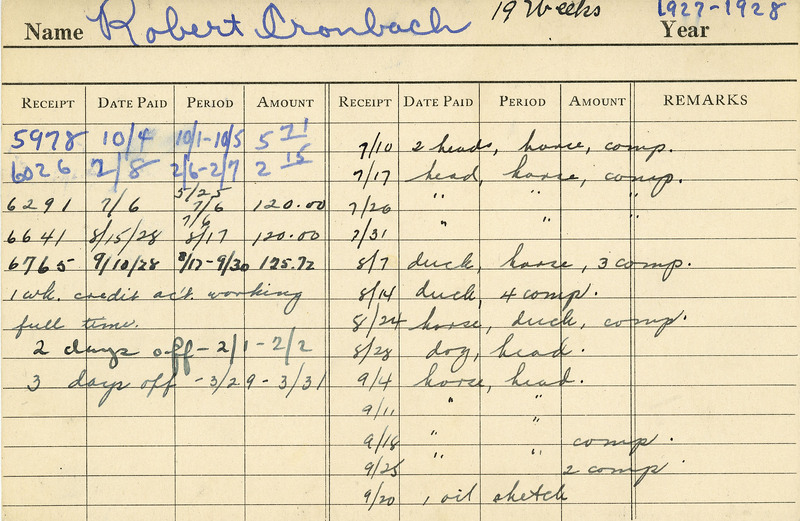 Name Robert Cronbach 19 Weeks 1927-1928 Year
RECEIPT DATE PAID PERIOD AMOUNT RECEIPT DATE PAID PERIOD AMOUNT REMARKS
5978 10/4 10/1-10/5 5 71
6026 2/8 2/6-2/7 2 15
6291 7/6 5/25 7/6 120.00
6641 8/15/28 7/6 8/17 120.00
6765 9/10/28 8/17-9/30 125.72
1 wk. credit ac't. working
full time.
2 days off - 2/1 - 2/2
3 days off - 3/29 - 3/31
7/10 2 heads, horse, comp.
7/17 head, horse, comp.
7/26 " " "
7/31 " " "
8/7 duck, horse, 3 comp.
8/14 duck, 4 comp.
8/24 horse, duck, comp.
8/28 dog, head.
9/4 horse, head.
9/11 " "
9/18 " " comp.
9/25 " " 2 comp
9/20 1 oil sketch